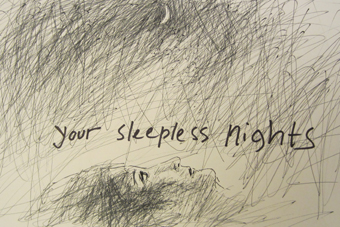 your sleepless nights